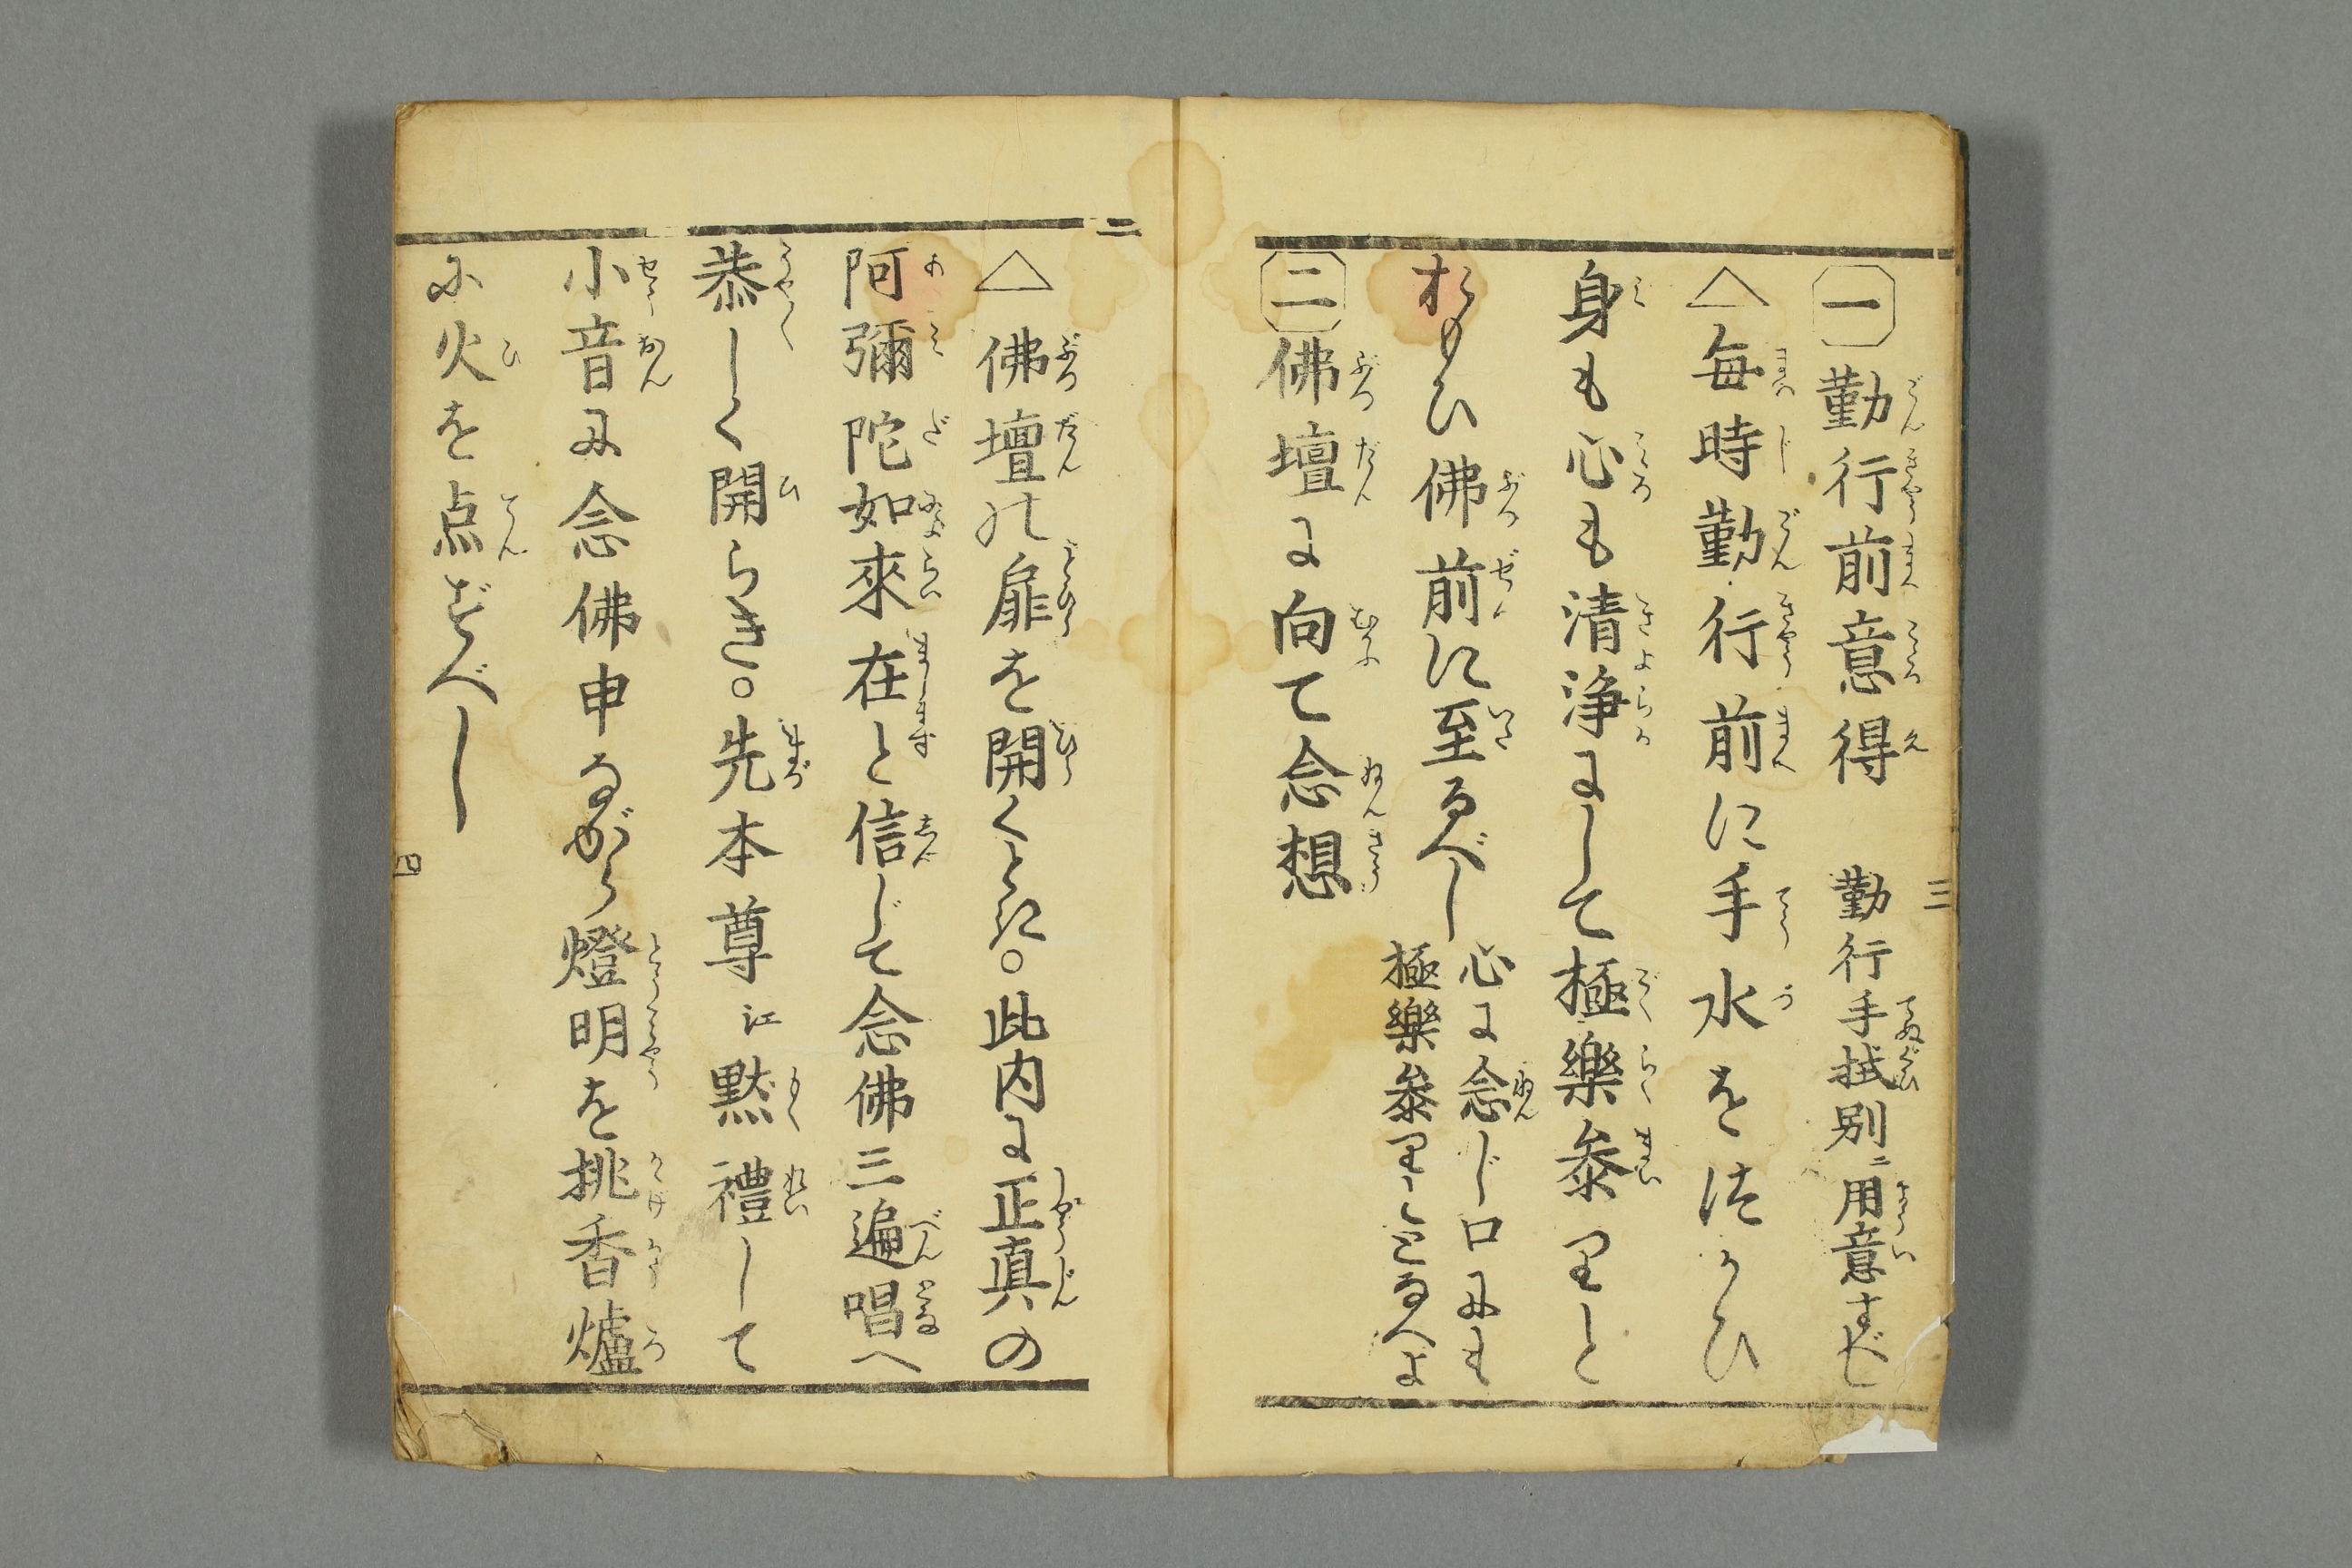 一 勤行前意得 勤行手拭別ニ用意すべし
△毎時勤行前に手水をつかひ
身も心も清浄にして極樂參りと
おもひ佛前に至るべし 心に念じ口にも
極樂參りととなへよ
二 佛壇に向て念想
三
△佛壇の扉を開くときに○此内に正真の
阿彌陀如來在と信じて念佛三遍唱へ
恭しく開らき○先本尊江黙禮して
小音に念佛申ながら燈明を挑香爐
に火を点ずべし
二
四